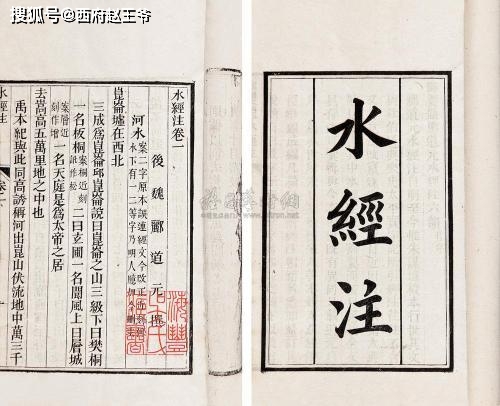 搜狐号@西府赵王爷
水經注
水經注卷一
後魏酈道元撰
河水案二字原本誤連經文今改正近刻
水下有一二等字乃明人臆
崑崙墟在西北
三成爲崑崙邱崑崙說曰崑崙之山三級下曰樊桐
一名板桐案桐近刻訛作松二曰玄圃一名閬風上曰層城
案層近刻作增一名天庭是爲太帝之居
去嵩高五萬里地之中也
禹本紀與此同高誘稱河出崑山伏流地中萬三千
水經注 卷一